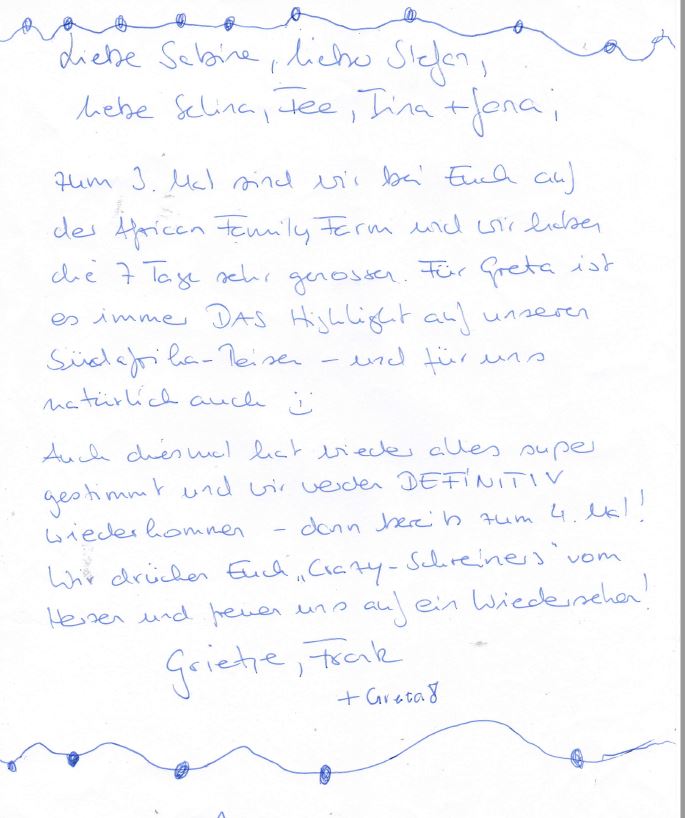 Liebe Sabine, liebe Stefan,
liebe Selina, Fee, Tina + Jona,
zum 3. Mal sind wir bei Euch auf
der African Family Farm und wir haben
die 7 Tage sehr genossen. Für Greta ist
es immer DAS Highlight auf unseren
Südafrika-Reisen – und für uns
natürlich auch :)
Auch diesmal hat wieder alles super
gestimmt und wir werden DEFINITIV
wiederkommen – dann bereits zum 4. Mal!
Wir drücken Euch „Crazy-Schreiners" vom
Herzen und freuen uns auf ein Wiedersehen!
Grietje, Frank
+ Greta